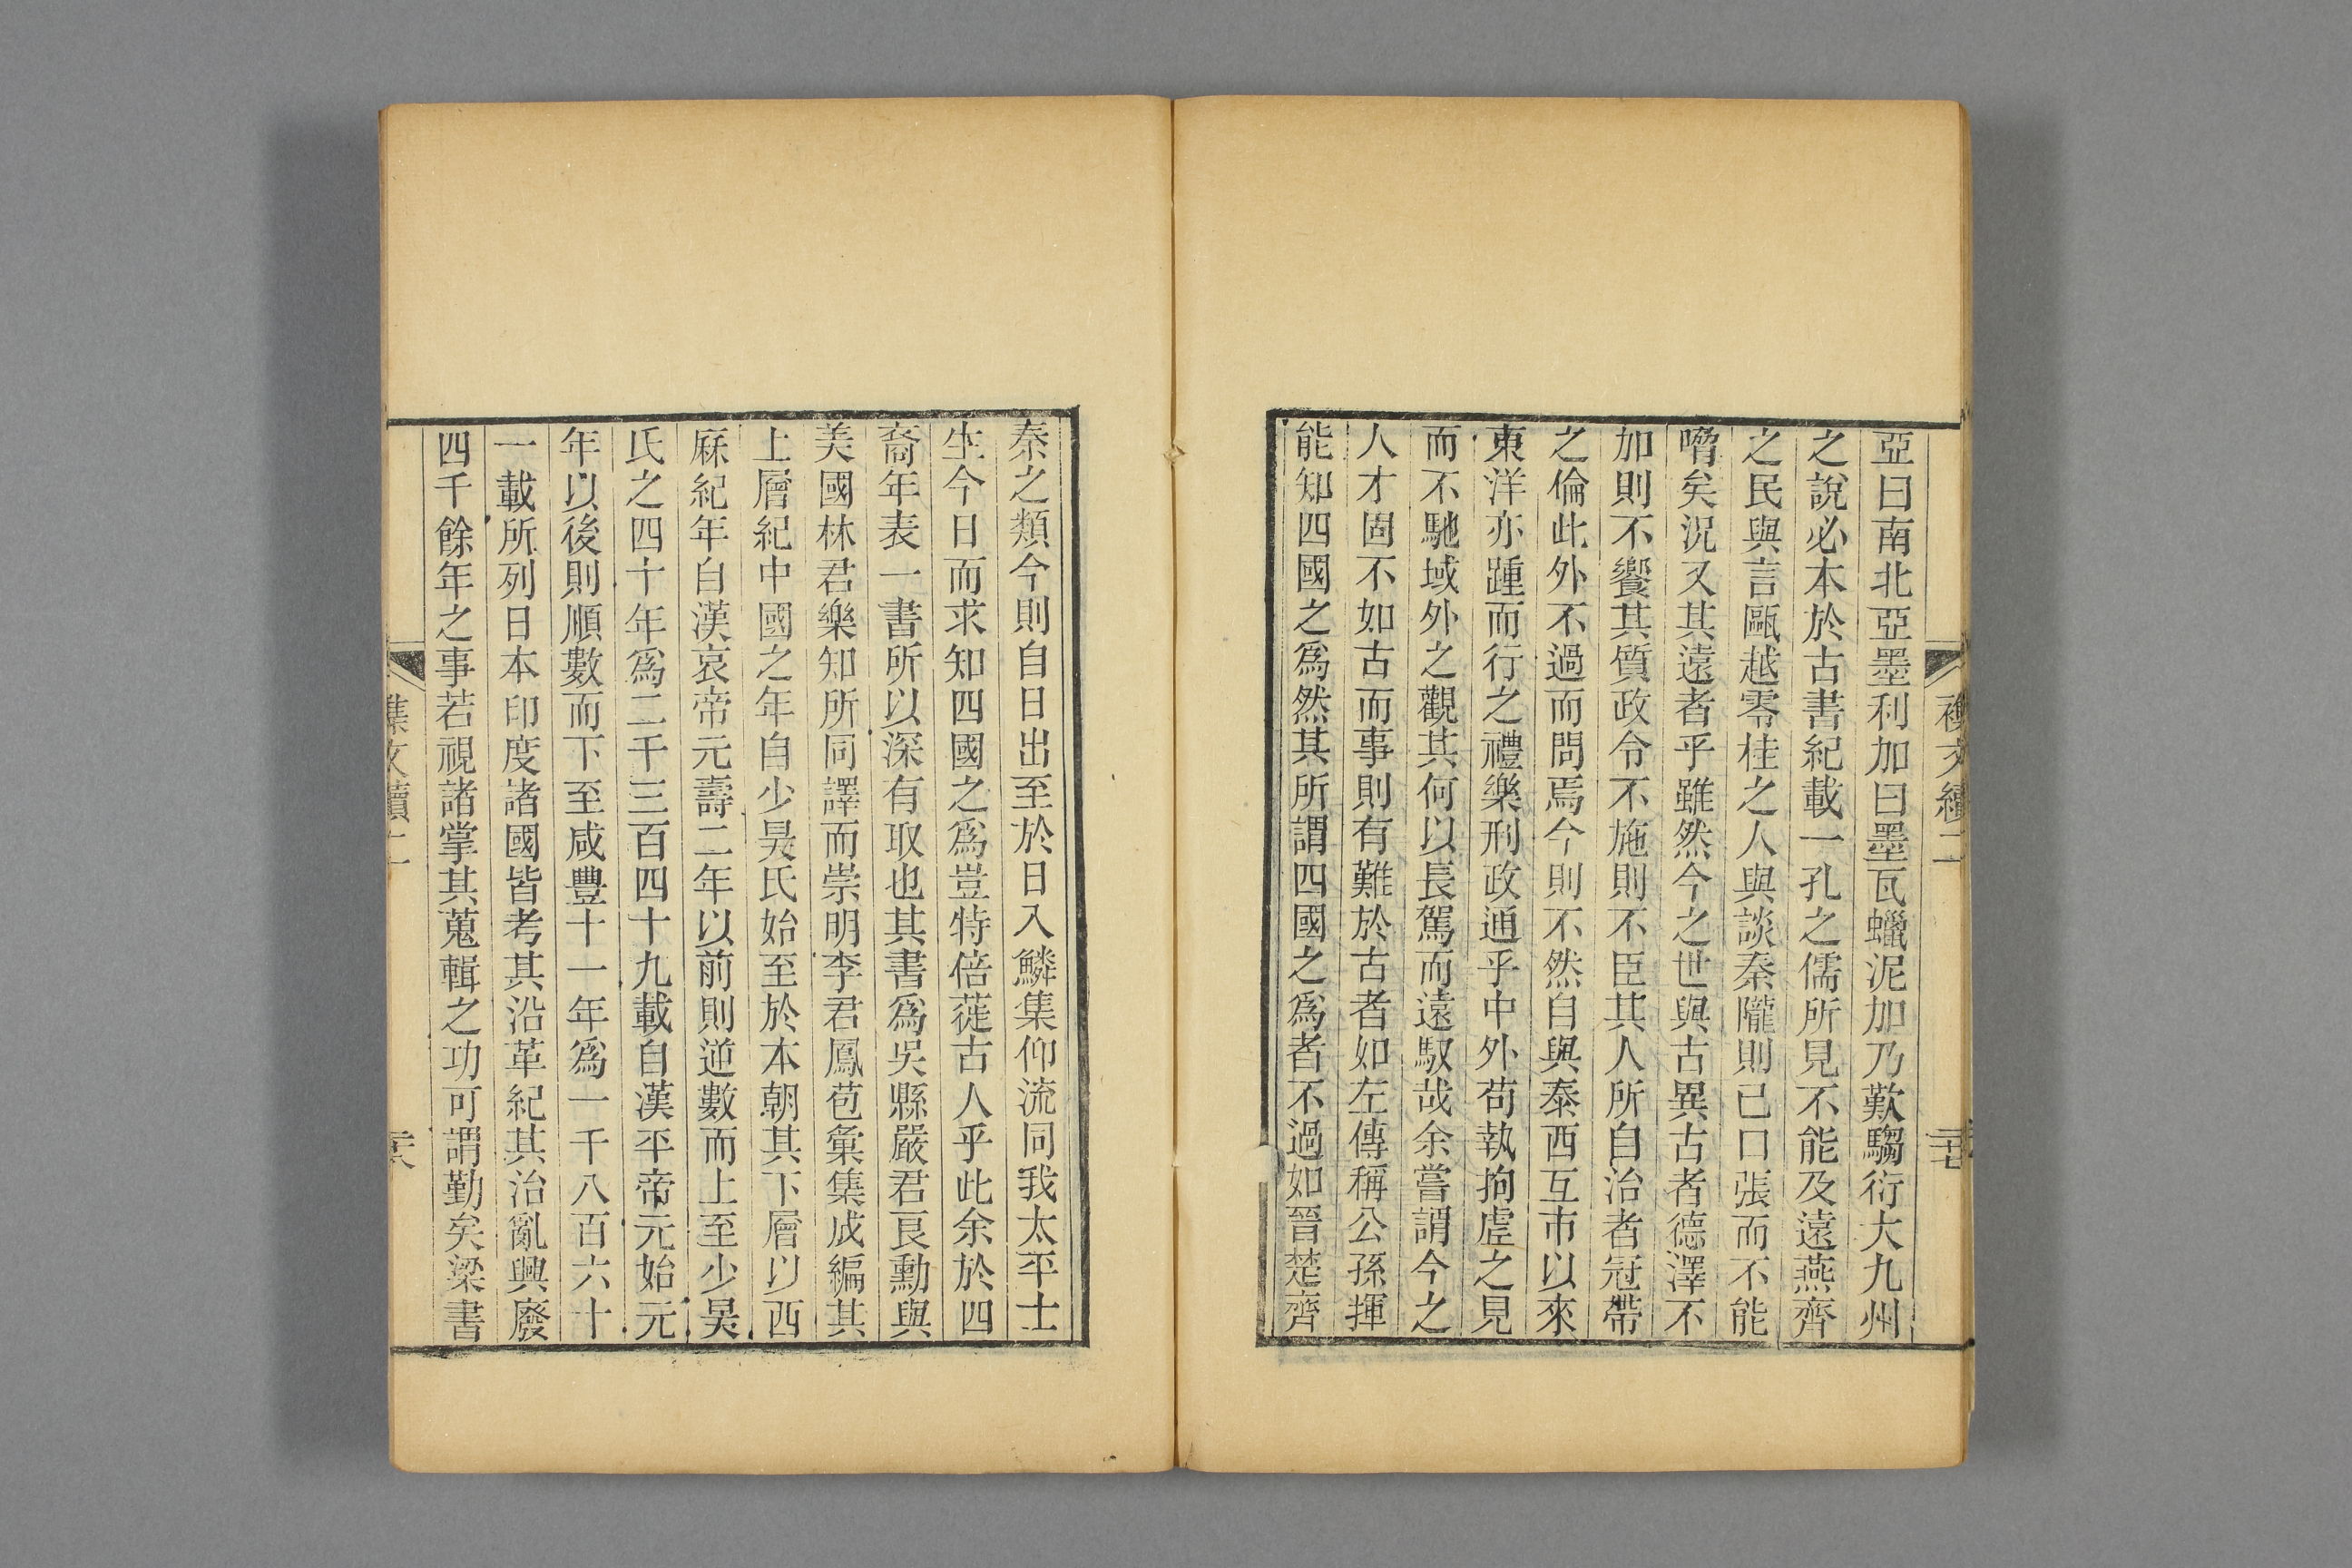 亞曰南北亞墨利加曰墨瓦蠟泥加乃歎騶衍大九州
之說必本於古書紀載一孔之儒所見不能及遠燕齊
之民與言甌越零桂之人與談秦隴則已口張而不能
嗋矣況又其遠者乎雖然今之世與古異古者德澤不
加則不饗其質政令不施則不臣其人所自治者冠帶
之倫此外不過而問焉今則不然自與泰西互市以來
東洋亦踵而行之禮樂刑政通乎中外苟執拘虛之見
而不馳域外之觀其何以長駕而遠馭哉余嘗謂今之
人才固不如古而事則有難於古者如左傳稱公孫揮
能知四國之爲然其所謂四國之爲者不過如晉楚齊
秦之類今則自日出至於日入鱗集仰流同我太平士
生今日而求知四國之爲豈特倍蓰古人乎此余於四
裔年表一書所以深有取也其書爲吳縣嚴君良勳與
美國林君樂知所同譯而崇明李君鳳苞彙集成編其
上層紀中國之年自少昊氏始至於本朝其下層以西
厤紀年自漢哀帝元壽二年以前則逆數而上至少昊
氏之四十年爲二千三百四十九載自漢平帝元始元
年以後則順數而下至咸豐十一年爲一千八百六十
一載所列日本印度諸國皆考其沿革紀其治亂興廢
四千餘年之事若視諸掌其蒐輯之功可謂勤矣梁書